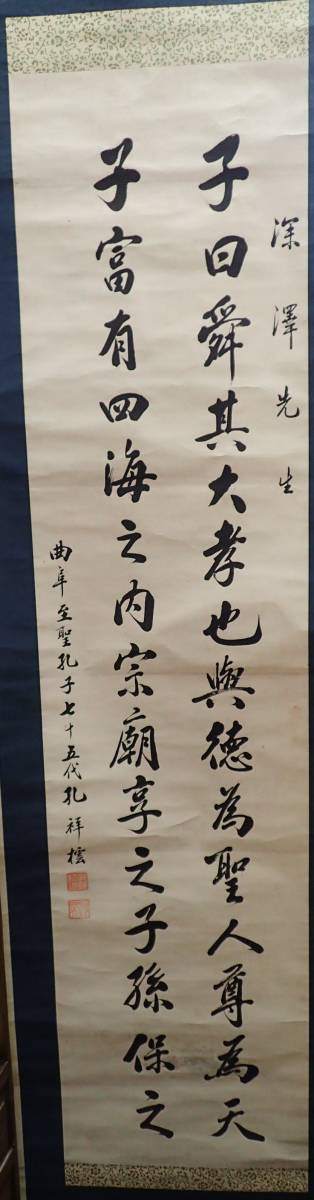 深澤先生
子曰舜其大孝也與德為聖人尊為天
子富有四海之内宗廟享之子孫保之
曲阜至聖孔子七十五代孔祥樰